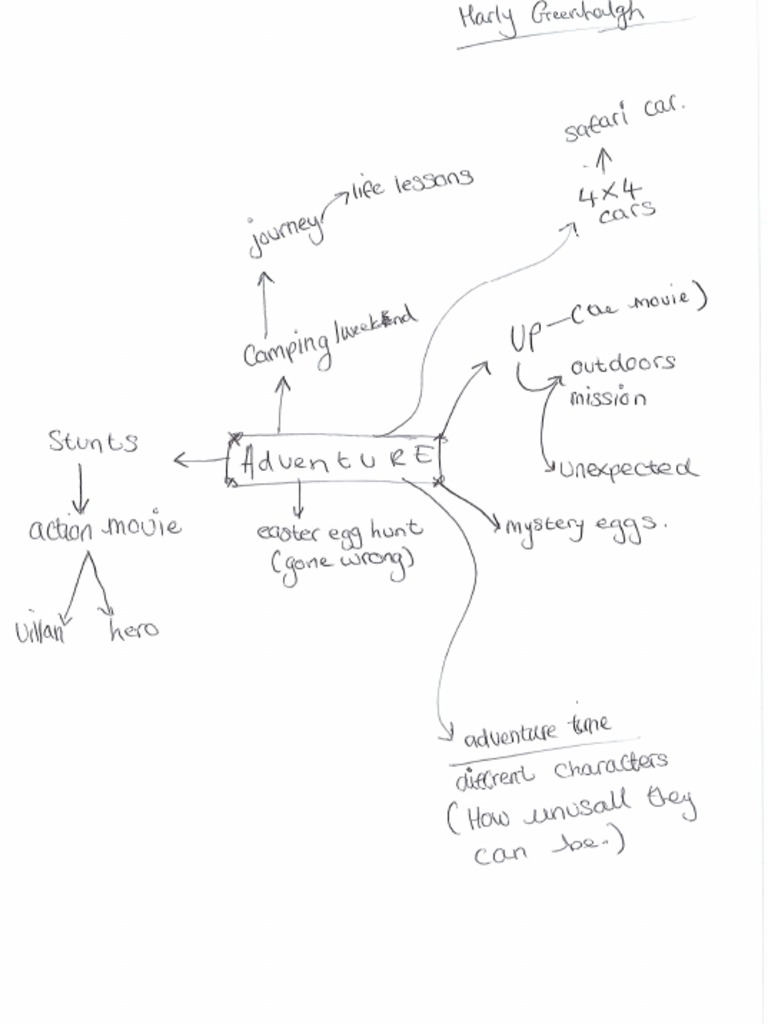 Harly Greenhalgh
safari car.
4x4
cars
life lessons
journey
Camping/weekend
UP - (the movie)
outdoors
mission
unexpected
Stunts
ADVENTURE
action movie
easter egg hunt
(gone wrong)
mystery eggs.
Villan
hero
adventure time
different characters
(How unusall they
can be.)